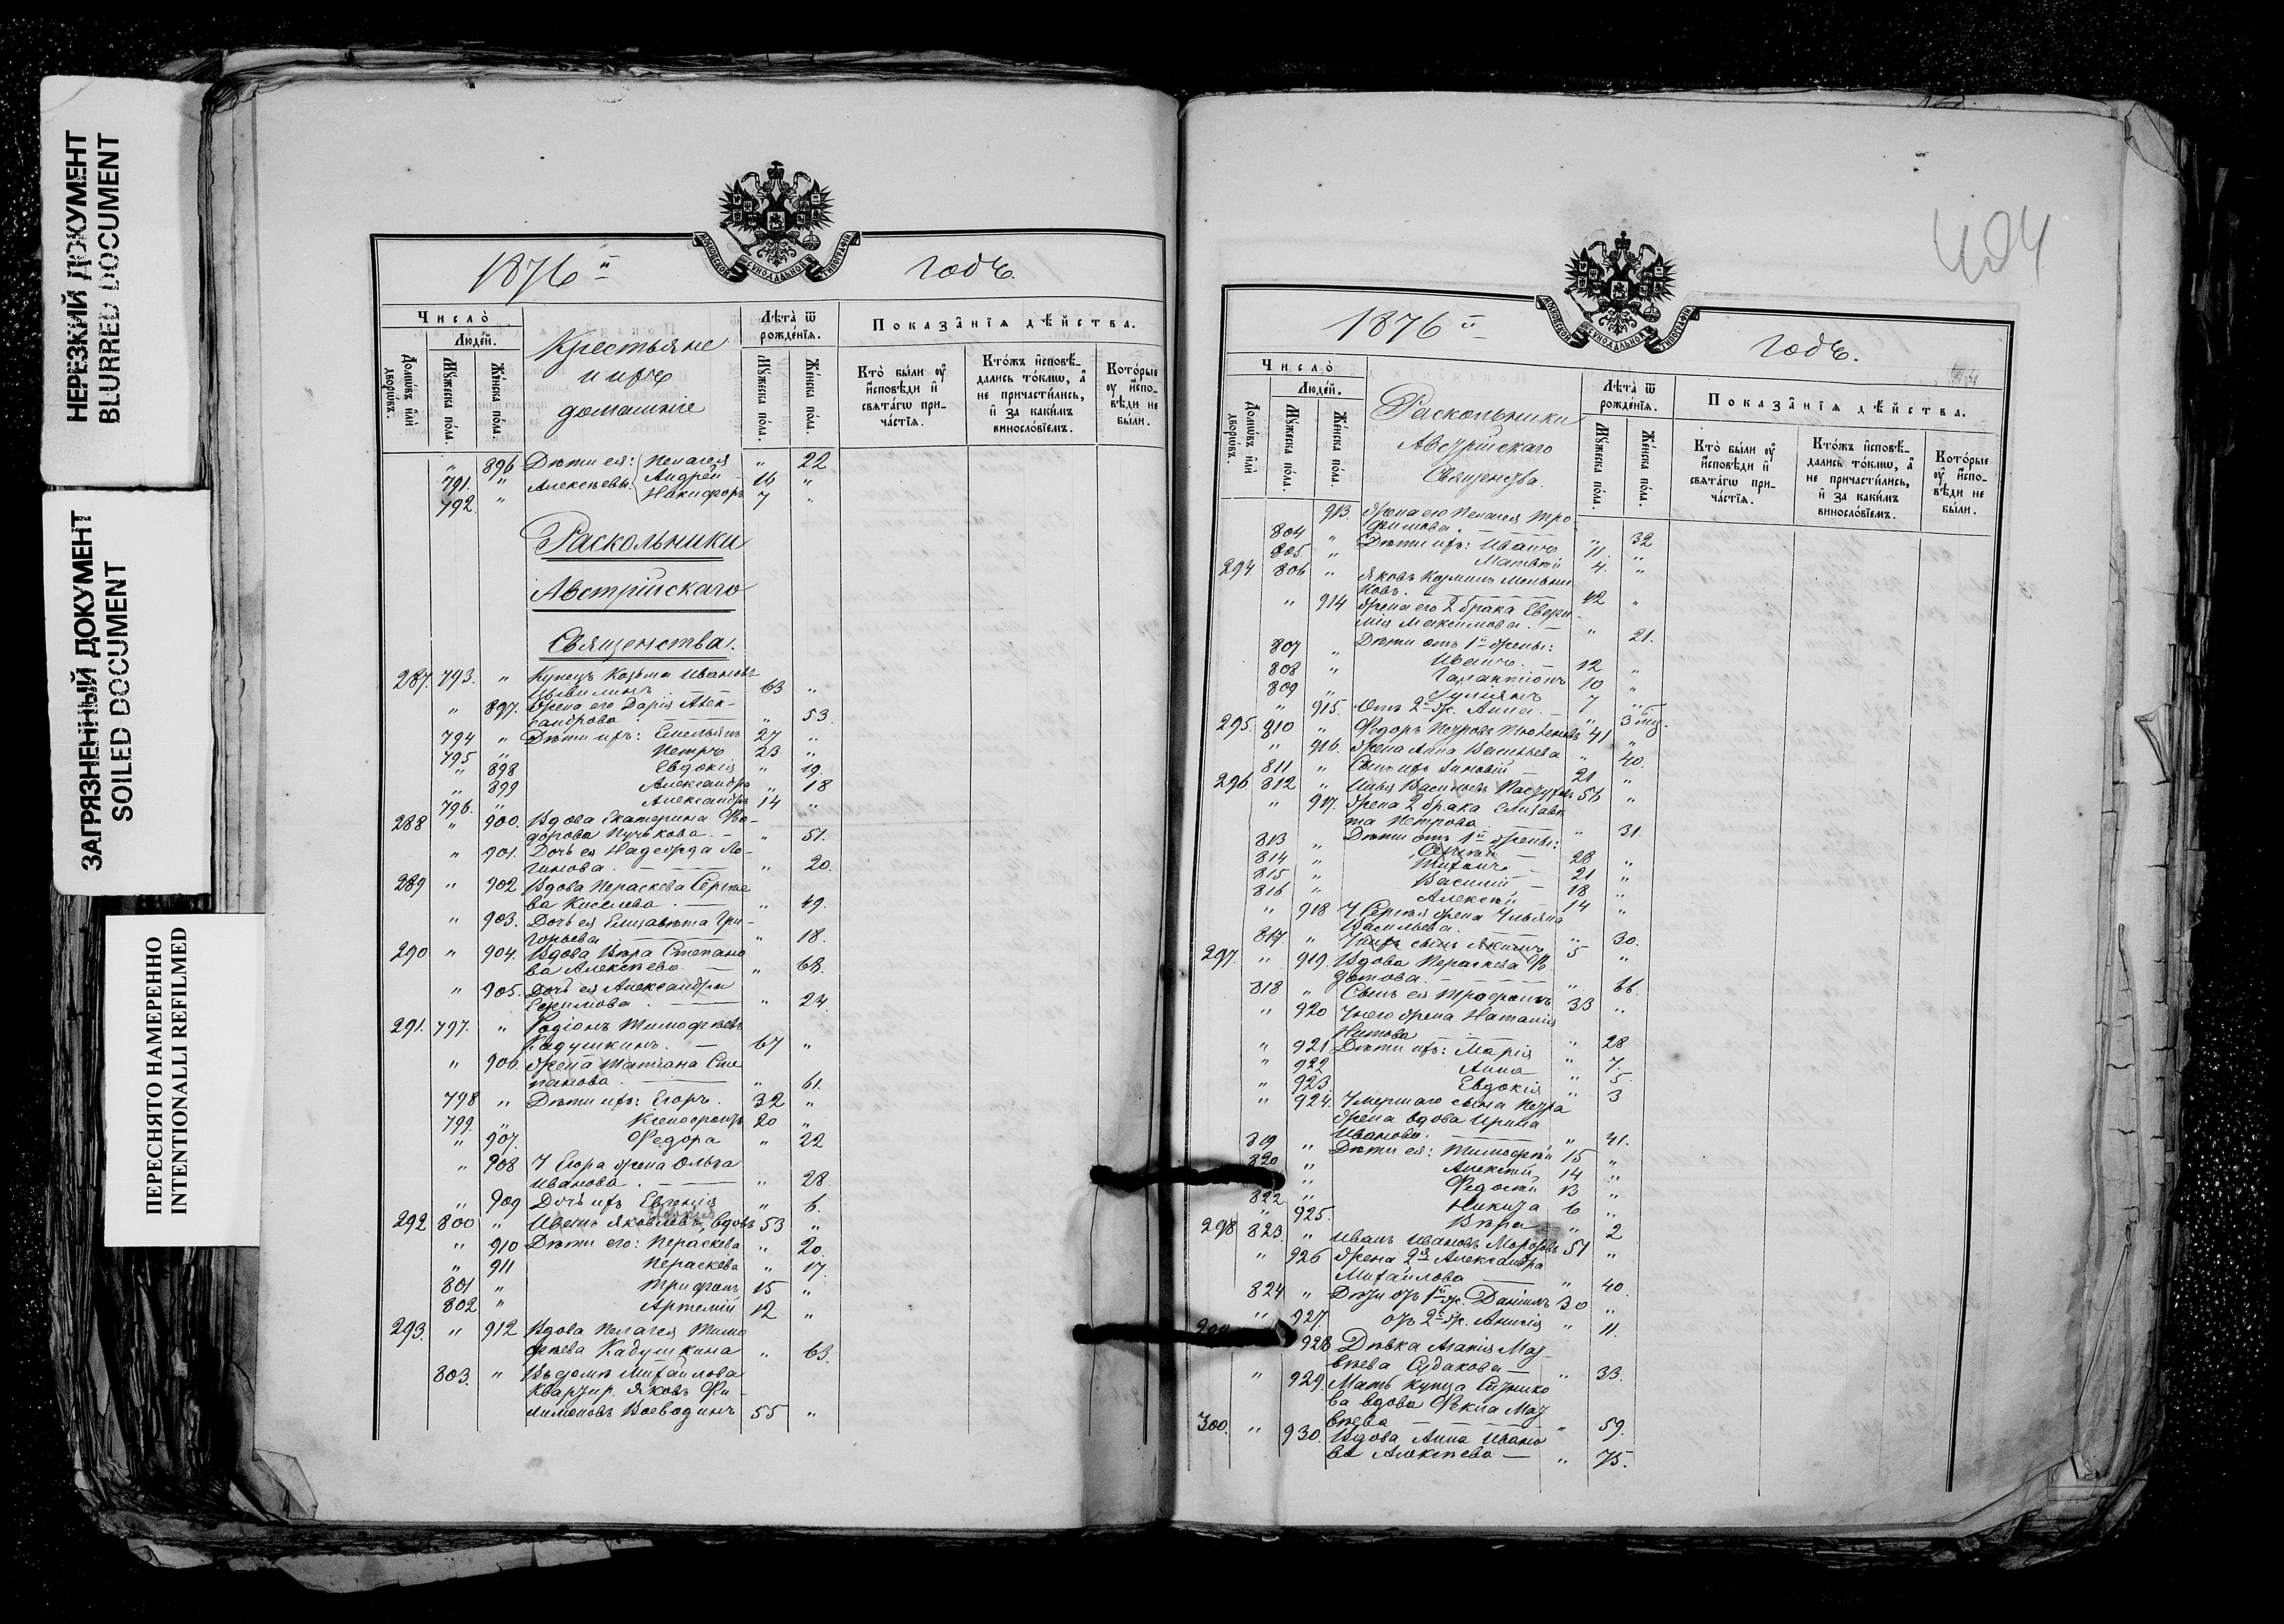 НЕРЕЗКИЙ ДОКУМЕНТ
BLURRED DOCUMENT
ЗАГРЯЗНЕННЫЙ ДОКУМЕНТ
SOILED DOCUMENT
ПЕРЕСНЯТО НАМЕРЕННО
INTENTIONALLI REFILMED
МОСКОВСКОЙ СѴНОДАЛЬНОЙ ТИПОГРАФІИ
1876 й годъ.
Число̀
Людей.
Домѡвъ или дворѡвъ.
Мꙋжеска пола.
Женска пола.
Крестьяне
и ихъ
домашніе
Лѣта ѿ рожденїѧ.
Мꙋжеска пола.
Женска пола.
Показанїѧ дѣйства.
Кто были оу исповѣди и свѧтагѡ причастїѧ.
Ктожъ исповѣдались токмѡ, а не причастились, и за какимъ винословїемъ.
Которые оу исповѣди не были.
" 896 Дѣти ея: Пелагея " 22
791. " Алексѣевы. Андрей 16 "
792. " Никифоръ 7 "
Раскольники
Австрійскаго
Священства.
287. 793. " Купецъ Козьма Ивановъ
63 "
" 897. Жена его Дарія Алек-
сандрова " 53.
794 " Дѣти ихъ: Емельянъ 27 "
795 " Петръ 23 "
" 898 Евдокія " 19.
" 899 Александра " 18
796. " Александръ 14 "
288 " 900. Вдова Екатерина Фео-
дорова Пучкова. " 51.
" 901. Дочь ея Надежда Ло-
гинова. " 20.
289 " 902 Вдова Пераскева Сергѣе
ва Киселева. " 49.
" 903. Дочь ея Елизавета Гри-
горьева " 18.
290 " 904. Вдова Вѣра Степано
ва Алексѣева. " 68.
" 905. Дочь ея Александра
Ефимова. " 24.
291. 797. " Родіонъ Тимофѣевъ
Кадушкинъ. 67 "
" 906. Жена Татіана Сте
панова. " 61.
798 " Дѣти ихъ: Егоръ. 32 "
799. " Ксенофонтъ 20 "
" 907. Федора " 22
" 908 У Егора жена Ольга
Иванова. " 28.
" 909 Дочь ихъ Евгенія " 6.
292 800 " Иванъ Яковлевъ, вдовъ 53 "
" 910 Дѣти его: Пераскева " 20.
" 911 Пераскева " 17.
801 " Трифонъ 15 "
802 " Артемій 12 "
293. " 912 Вдова Пелагея Тимо
фѣева Кадушкина " 63.
803. " Въ домѣ Михайлова
квартир. Яковъ Фи-
лимоновъ Воеводинъ 55 "
404
МОСКОВСКОЙ СѴНОДАЛЬНОЙ ТИПОГРАФІИ
1876 й годъ.
Число̀
Людей.
Домѡвъ или дворѡвъ.
Мꙋжеска пола.
Женска пола
Раскольники
Австрійскаго
Священства.
Лѣта ѿ рожденїѧ.
Мꙋжеска пола.
Женска пола.
Показанїѧ дѣйства.
Кто были оу исповѣди и свѧтагѡ причастїѧ.
Ктожъ исповѣдались токмѡ, а не причастились, и за какимъ винословїемъ.
Которые оу исповѣди не были.
913. Жена его Пелагея Тро-
фимова. " 32
804 " Дѣти ихъ: Иванъ 11. "
805 " Матвѣй 4. "
294 806 " Яковъ Козминъ Мельни
ковъ. 42 "
" 914 Жена его 2 брака Евфи-
мія Максимова. " 21.
Дѣти отъ 1й жены:
807 " Иванъ. 12 "
808 " Галактіонъ 10 "
809 " 7 "
" 915. Отъ 2й ж. Анна. " 3 мѣс.
295. 810 " Федоръ Петровъ 41 "
" 916. Жена Анна Васильева " 40.
811 " Сынъ ихъ Зиновій 21 "
296 812 " Илья Васильевъ Пастуховъ 56 "
" 917. Жена 2 брака Елизаве
та Петрова " 31.
Дѣти отъ 1й жены:
813 " Сергѣй 28 "
814 " Тихонъ 21 "
815 " Василій 18 "
816 " Алексѣй 14 "
" 918 У Сергѣя жена Ульяна
Васильева. " 30.
817 " У нихъ сынъ Акимъ 5 "
297. " 919. Вдова Пераскева Ф.
дотова. " 66.
818 " Сынъ ея Трофимъ 33 "
" 920 У него жена Наталія
Титова " 28
" 921 Дѣти ихъ: Марія " 7.
" 922 Анна " 5.
" 923. Евдокія " 3
" 924. Умершаго сына Петра
жена вдова Ирина
Иванова. " 41.
819 " Дѣти ея: Тимофѣй 15 "
820 " Алексѣй 14 "
" Федосѣй 13 "
822 " Никита 6 "
" 925. Вѣра " 2
298 823 " Иванъ Ивановъ Морозовъ 51 "
" 926 Жена 2я Александра
Михайлова " 40.
824 " Дѣти отъ 1й ж. Даніилъ 30 "
" 927. отъ 2й ж. Анисія " 11.
928 Дѣвка Агапія Мат-
вѣева Судакова " 33.
" 929. Мать купца Ситнико
ва вдова Фекла Мат
вѣева " 59.
300. " 930. Вдова Анна Ивано
ва Алексѣева " 75.